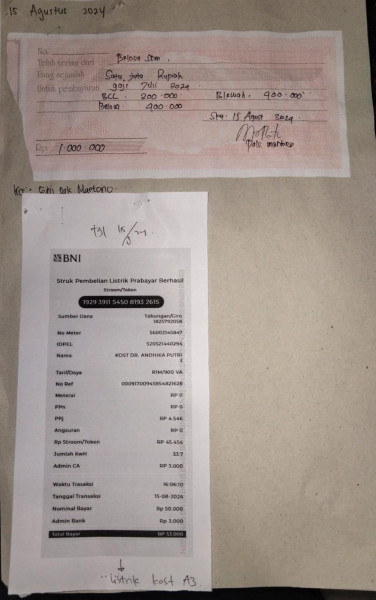 15 Agustus 2024
No.
Telah terima dari Belova Skin
Uang sejumlah Satu juta Rupiah
Untuk pembayaran gaji Juli 2024
BCL. 200.000 B.Jawah. 400.000
Belova 400.000
Ska, 15 Agust 2024
Pak martono
Rp 1.000.000
Ket : Gaji pak Martono
tgl 15/8 24
BNI
Struk Pembelian Listrik Prabayar Berhasil
Stroom/Token
1929 3911 5450 8193 2615
Sumber Dana Tabungan/Giro
1825792058
No Meter 56502140847
IDPEL 520521440294
Nama KOST DR. ANDHIKA PUTRI
Tarif/Daya R1M/900 VA
No Ref
Meterai RP 0
PPn RP 0
PPj RP 4.546
Angsuran RP 0
Rp Stroom/Token RP 45.454
Jumlah KwH 33.7
Admin CA RP 3.000
Waktu Trasaksi 16:06:10
Tanggal Transaksi 15-08-2024
Nominal Bayar Rp 50.000
Admin Bank Rp 3.000
Total Bayar RP 53.000
listrik kost A3